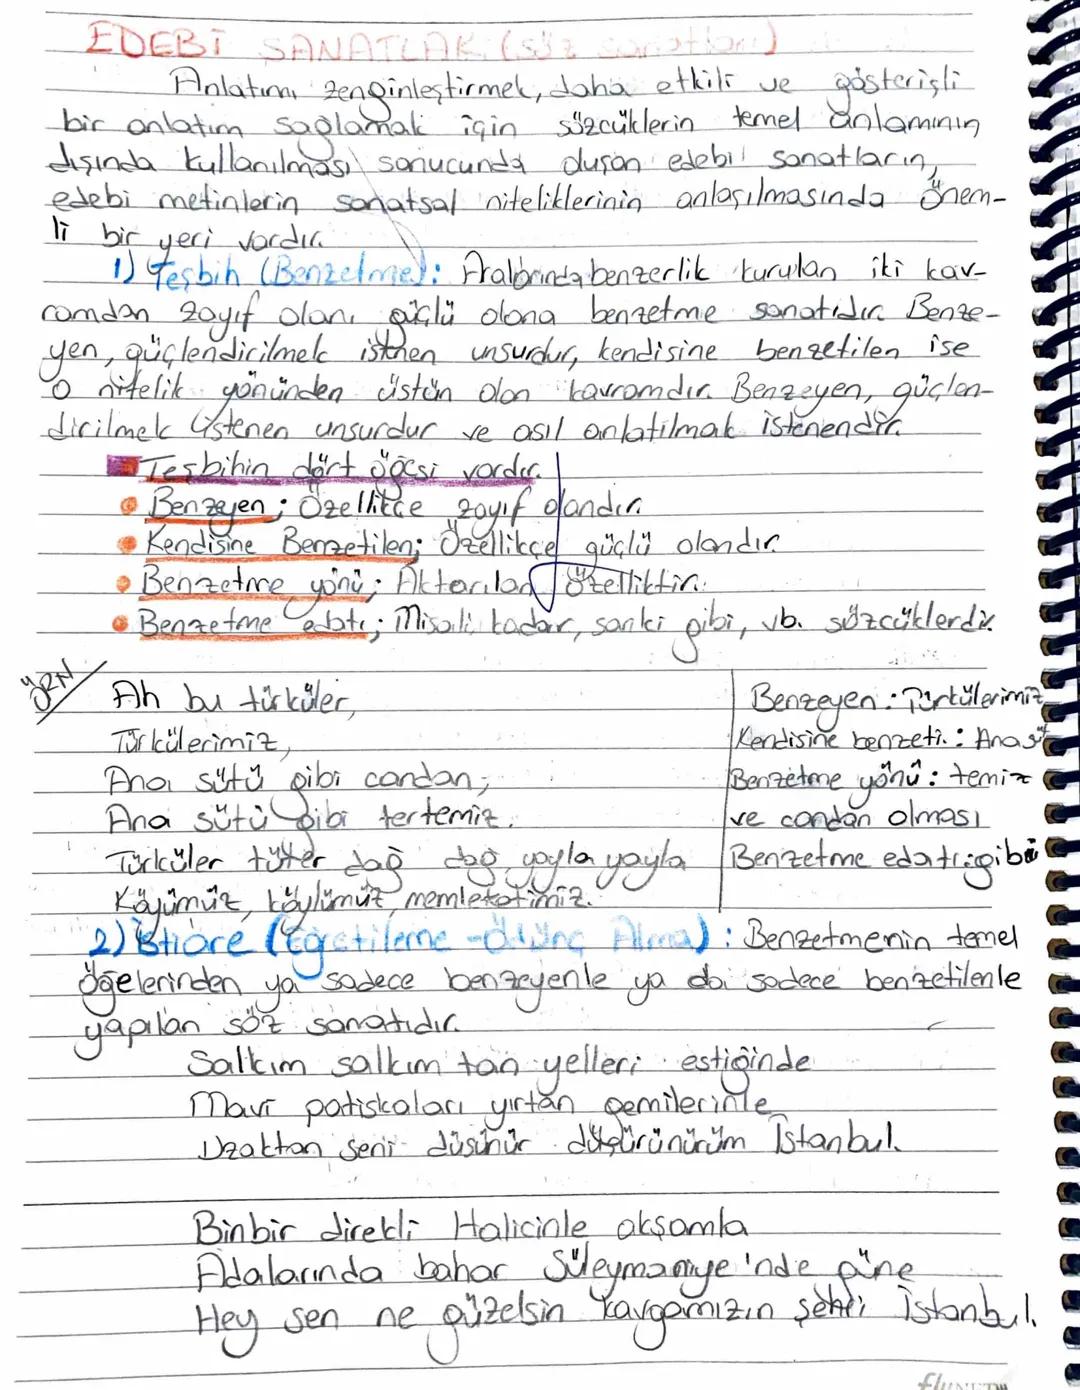 EDEBİ SANATLAR (söz sanatları)
Anlatımı zenginleştirmek, daha etkili ve gösterişli
bir anlatım sağlamak için sözcüklerin temel anlamının
dışında kullanılması sonucunda oluşan edebi sanatların,
edebi metinlerin sanatsal niteliklerinin anlaşılmasında önem-
li bir yeri vardır.
1) Teşbih (Benzetme): Aralarında benzerlik kurulan iki kav-
ramdan zayıf olanı güçlü olana benzetme sanatıdır. Benze-
yen, güçlendirilmek istenen unsurdur, kendisine benzetilen ise
o nitelik yönünden üstün olan kavramdır. Benzeyen, güçlen-
dirilmek istenen unsurdur ve asıl anlatılmak istenendir.
Teşbihin dört öğesi vardır.
Benzeyen; Özellikçe zayıf olandır.
Kendisine Benzetilen; Özellikçe güçlü olandır.
Benzetme yönü; Aktarılan özelliktir.
Benzetme edatı; Misali, kadar, sanki gibi, vb. sözcüklerdir.
ÖRN
Ah bu türküler,
Türkülerimiz,
Ana sütü gibi candan,
Ana sütü gibi tertemiz.
Türküler tüter dağ dağ yayla yayla
Köyümüz, köylümüz, memleketimiz.
Benzeyen: Türkülerimiz
Kendisine benzeti.: Ana süt
Benzetme yönü: temiz
ve candan olması
Benzetme edatı: gibi
2) İstiare (Eğretileme - Ödünç Alma): Benzetmenin temel
öğelerinden ya sadece benzeyenle ya da sadece benzetilenle
yapılan söz sanatıdır.
Salkım salkım tan yelleri estiğinde
Mavi patiskaları yırtan gemilerinle
Uzaktan seni düşünür düşürünürüm İstanbul.
Binbir direkli Halicinle akşamla
Adalarında bahar Süleymaniye'nde güne
Hey sen ne güzelsin kavgamızın şehri İstanbul.